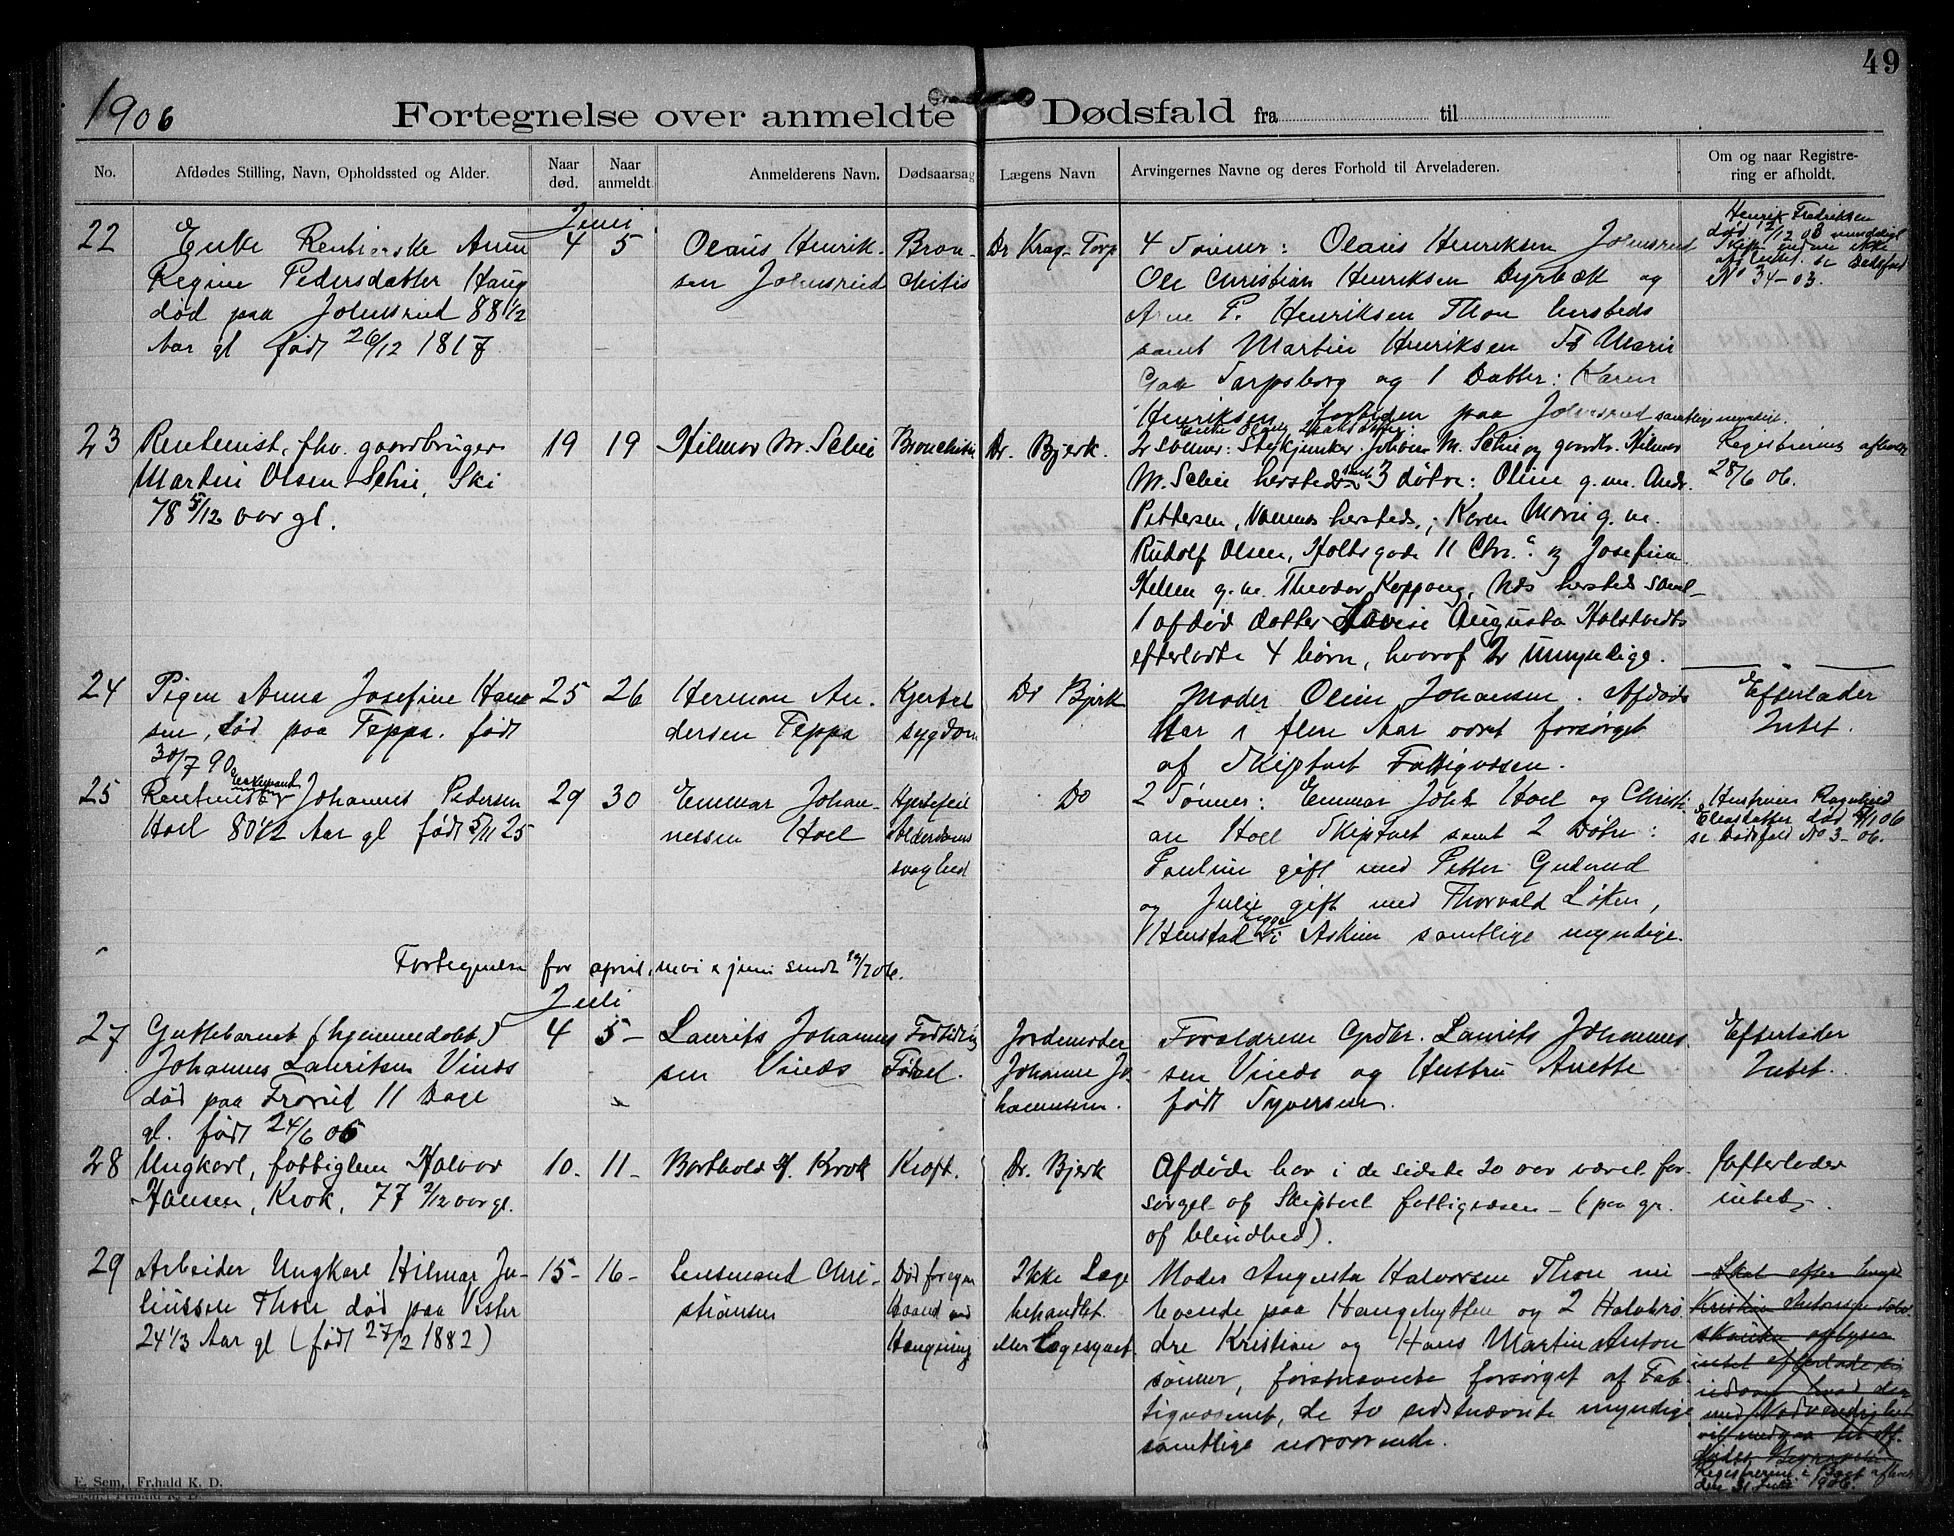 49
1906
Fortegnelse over anmeldte Dødsfald fra til
No.
Afdødes Stilling, Navn, Opholdssted og Alder.
Naar død.
Naar anmeldt.
Anmelderens Navn.
Dødsaarsag
Lægens Navn
Arvingernes Navne og deres Forhold til Arveladeren.
Om og naar Registre-
ring er afholdt.
Juni
22
Enke Anne
Regine Pedersdatter Haug
død paa Johnsrud 88 1/2
Aar gl født 26/12 1817
4
5
Olaus Henrik-
sen Johnsrud
Bron-
chitis
Dr Krag-Torp
4 Sønner: Olaus Henriksen Johnsrud
Ole Christian Henriksen Dyrbæk og
Arne P. Henriksen Thon hersteds
samt Martin Henriksen St Marie
Gade Sarpsborg og 1 Datter: Karen
Henriksen paa Johnsrud samtlige myndige.
Henrik Fredriksen
død 12/12 03
Skifte endnu ikke
se Dødsfald
No 34-03.
23
Rentenist, fhv. gaardbruger
Martin Olsen Schie, Ski
78 5/12 aar gl.
19
19
Hilmar M. Schie
Bronchitis
Dr. Bjerk.
2 sønner: Johan M. Schie og gaardbr. Hilmar
M. Schie hersteds samt 3 døtre: Oline g.m. Andr.
Pettersen, hersteds; Karen Marie g.m.
Rudolf Olsen, Holtsgade 11 Chr.a og Josefine
Helene g.m. Theodor Koppang, Næs hersteds samt
1 afdød datter Lovise Augusta Holstvedts
efterladte 4 børn, hvoraf 2 umyndige.
Registrering afholdt
28/6 06.
24
Pigen Anna Josefine Han-
sen, død paa Teppa. født
30/7 90
25
26
Herman An-
dersen Teppa
Kjertel
sygdom
Dr Bjerk
Moder Oline Johansen. Afdøde
har i flere Aar været forsørget
af Skiptvet Fattigvæsen.
Efterlader
Intet.
25
Enkemand
Rentenist Johannes Pedersen
Hoel 80 1/2 Aar gl født 5/11 25
29
30
Emmar Johan-
nessen Hoel
Hjertefeil
Alderdoms
svaghed
Do
2 Sønner: Emmar Johs Hoel og Christi-
an Hoel Skiptvet samt 2 Døtre:
Pauline gift med Petter Guderud
og Julie gift med Thorvald Løken,
Henstad i Askim samtlige myndige.
Hustruen Ragnhild
død 4/1 06
se Dødsfald No 3-06.
Fortegnelse for april, mai & juni sendt 19/7 06.
Juli
27
Guttebarnet (hjemmedøbt)
Johannes Lauritsen Vinds
død paa Frorud 11 Dage
gl. født 24/6 06
4
5-
Laurits Johannes-
sen Vinds
Fortidlig
Fødsel.
Jordemoder
Johanne Jo-
hannessen.
Forældrene Grdbr. Laurits Johannes-
sen Vinds og Hustru Anette
født Syversen.
Efterlader
Intet.
28
Ungkarl, fattiglem Halvor
Hansen, Krok, 77 2/12 aar gl.
10.
11-
Barthold H. Krok
Kræft.
Dr. Bjerk
Afdøde har i de sidste 20 aar været for-
sørget af Skiptvet fattigvæsen - (paa gr.
af blindhed).
Efterlader
intet.
29
Arbeider Ungkarl Hilmar Ju-
liussen Thon død paa Vister
24 1/3 Aar gl (født 27/2 1882)
15-
16-
Lensmand Chri-
stiansen
Død for egen
Haand ved
Hængning
Ikke Læge
behandlet
eller Lægesynet
Moder Augusta Halvorsen Thon nu
boende paa Haugehytten og 2 Halvbrø-
dre Kristian og Hans Martin Anton
sønner, førstnævnte forsørget af Fat-
tigvæsenet, de to sidstnævnte myndige
samtlige nærværende.
Skal efter
Kristian Antonsen
intet efterlade sig
udover hvad der
med Nødvendighed
vil medgaa til Af-
dødes Begravelse
Registrering i Boet afholdt
den 31 Juli 1906.
E. Sem, Fr.hald K. D.